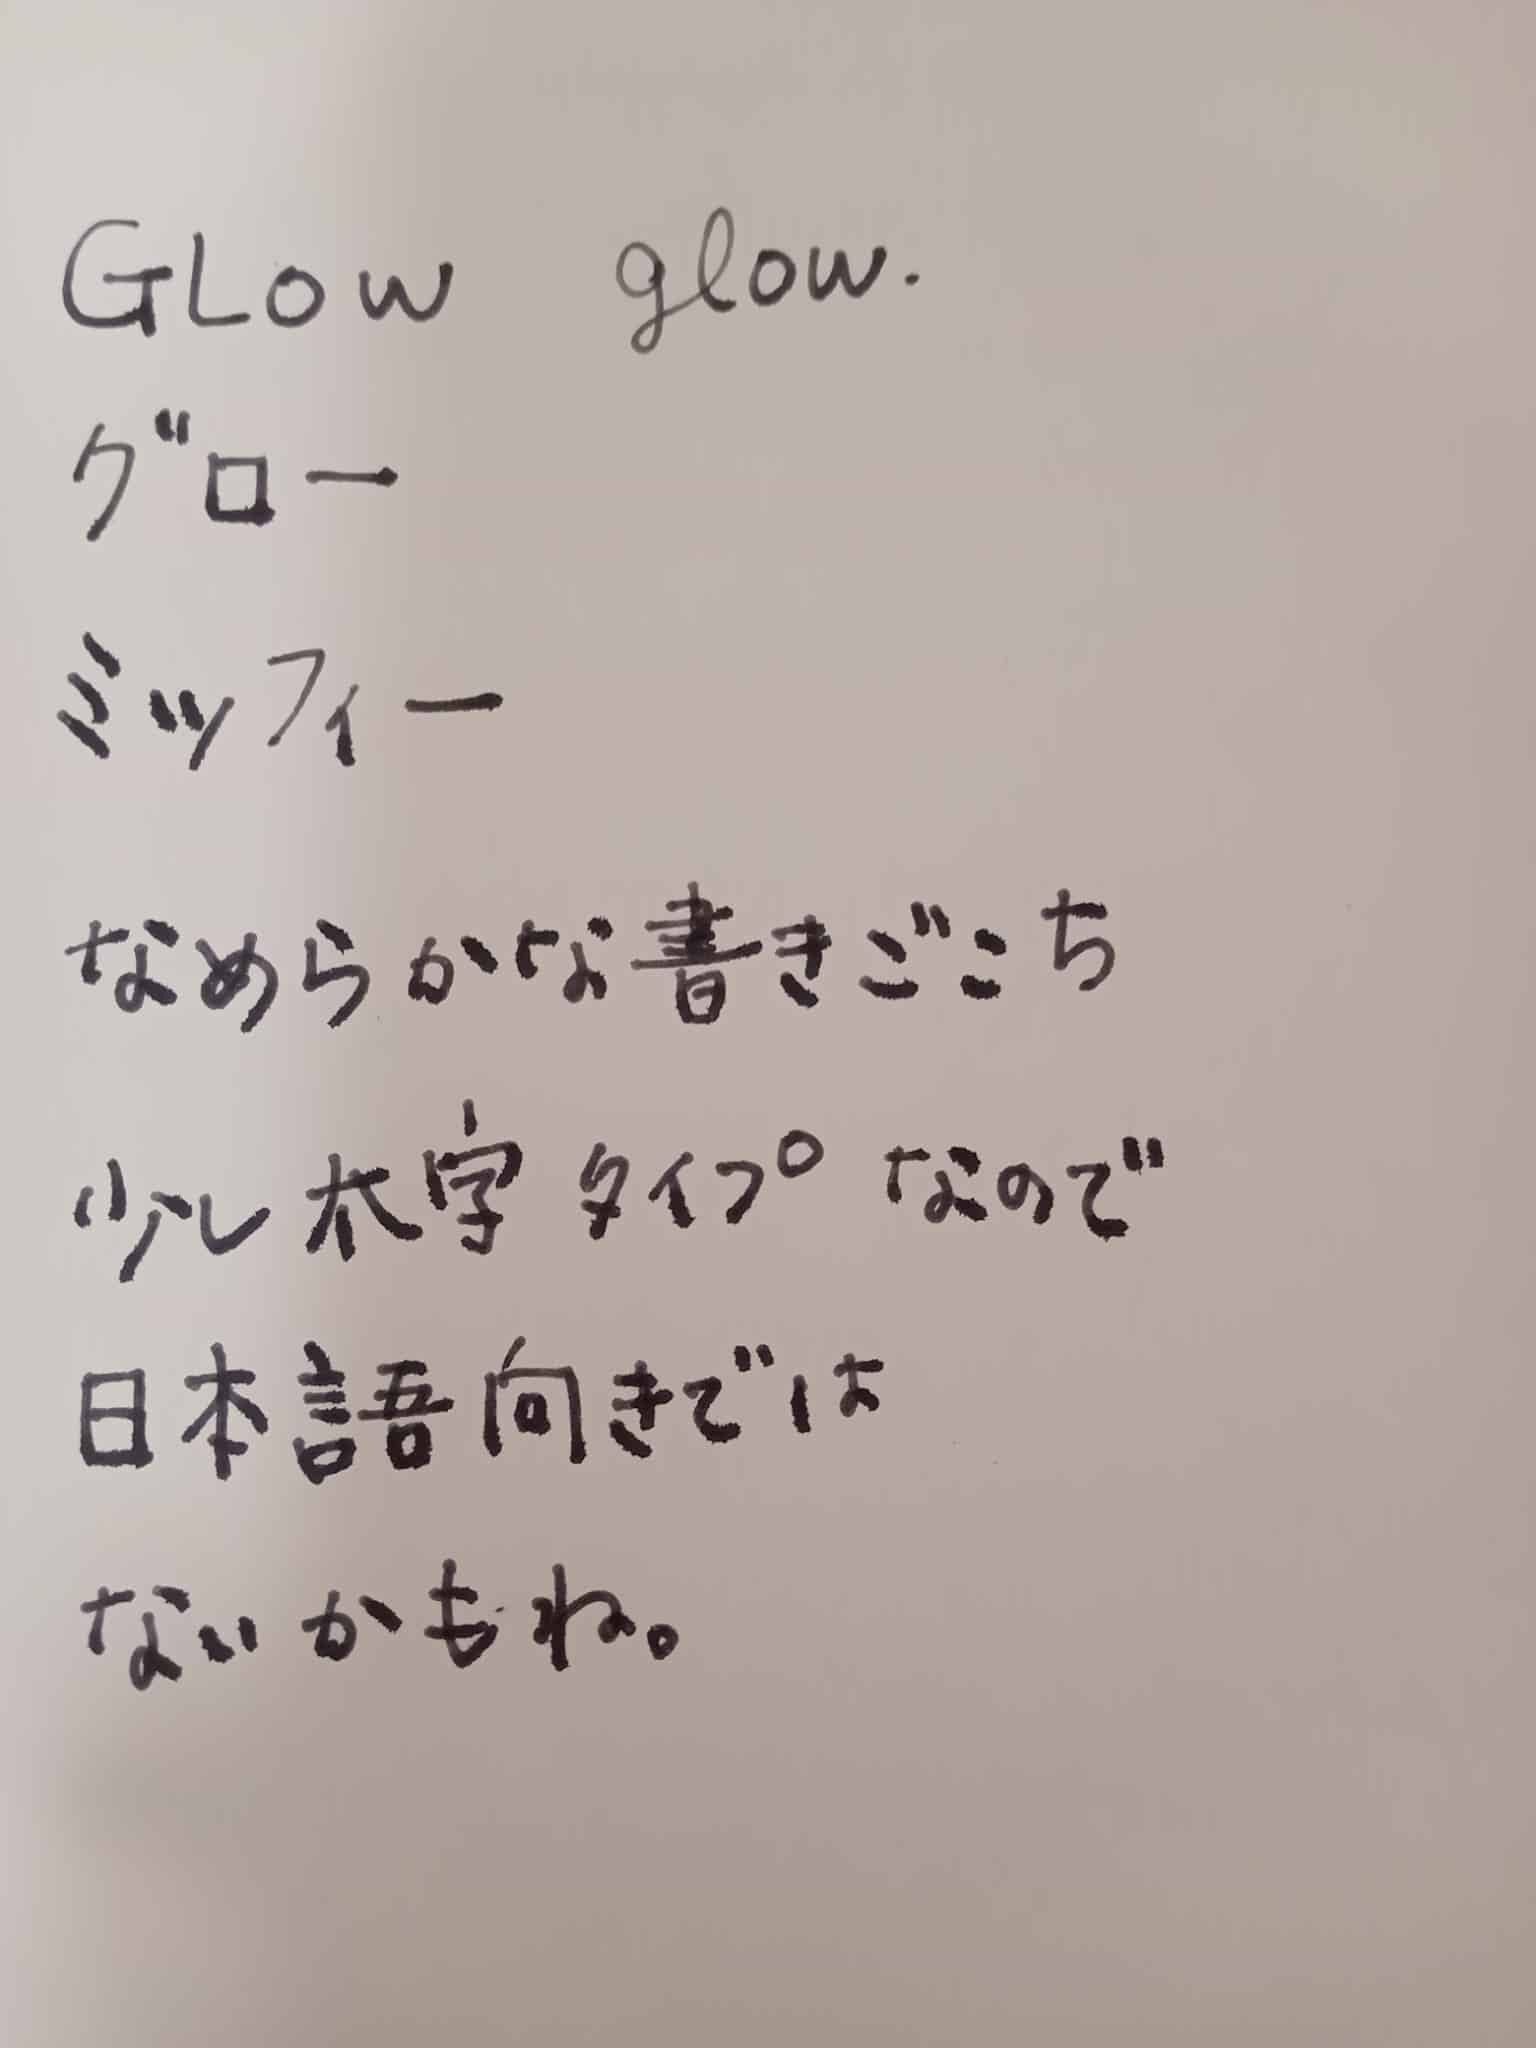 GLow glow.
グロー
ミッフィー
なめらかな書きごこち
少し太字タイプなので
日本語向きでは
ないかもね。